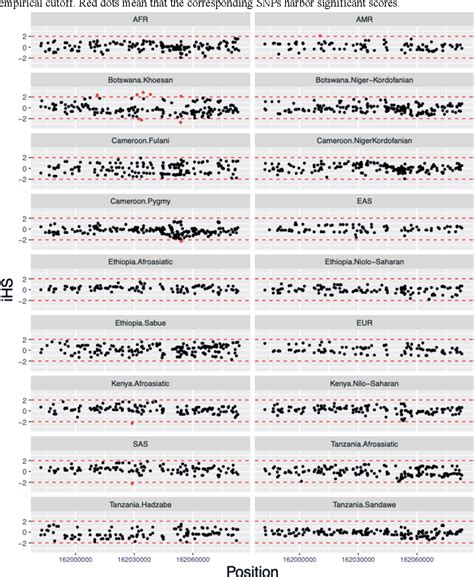 empirical cutoff. Red dots mean that the corresponding SNPs harbor significant scores.
AFR AMR
2
0
−2
Botswana.Khoesan Botswana.Niger−Kordofanian
2
0
−2
Cameroon.Fulani Cameroon.NigerKordofanian
2
0
−2
Cameroon.Pygmy EAS
2
0
−2
Ethiopia.Afroasiatic Ethiopia.Niolo−Saharan
2
0
−2
iHS
Ethiopia.Sabue EUR
2
0
−2
Kenya.Afroasiatic Kenya.Nilo−Saharan
2
0
−2
SAS Tanzania.Afroasiatic
2
0
−2
Tanzania.Hadzabe Tanzania.Sandawe
2
0
−2
162000000 162030000 162060000 162000000 162030000 162060000
Position